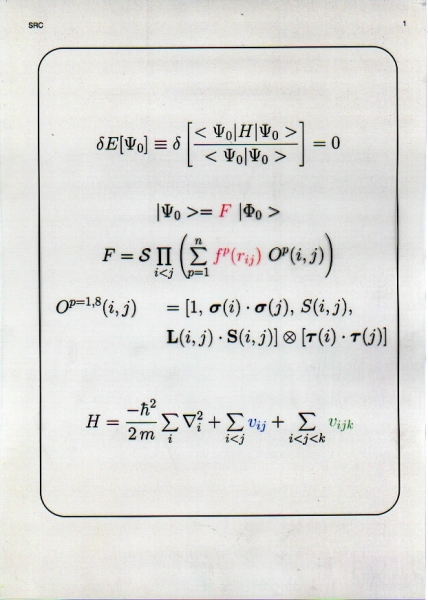 SRC 1
δE[Ψ₀] ≡ δ [ < Ψ₀|H|Ψ₀ > / < Ψ₀|Ψ₀ > ] = 0
|Ψ₀ >= F |Φ₀ >
F = 𝒮 ∏_{i<j} ( ∑_{p=1}^{n} f^p(r_{ij}) O^p(i,j) )
O^{p=1,8}(i,j) = [1, σ(i) · σ(j), S(i,j),
L(i,j) · S(i,j)] ⊗ [τ(i) · τ(j)]
H = −ħ²/2m ∑_i ∇_i² + ∑_{i<j} v_{ij} + ∑_{i<j<k} v_{ijk}